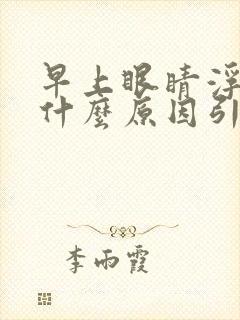 早上眼睛浮
什麼原因引
李雨霞